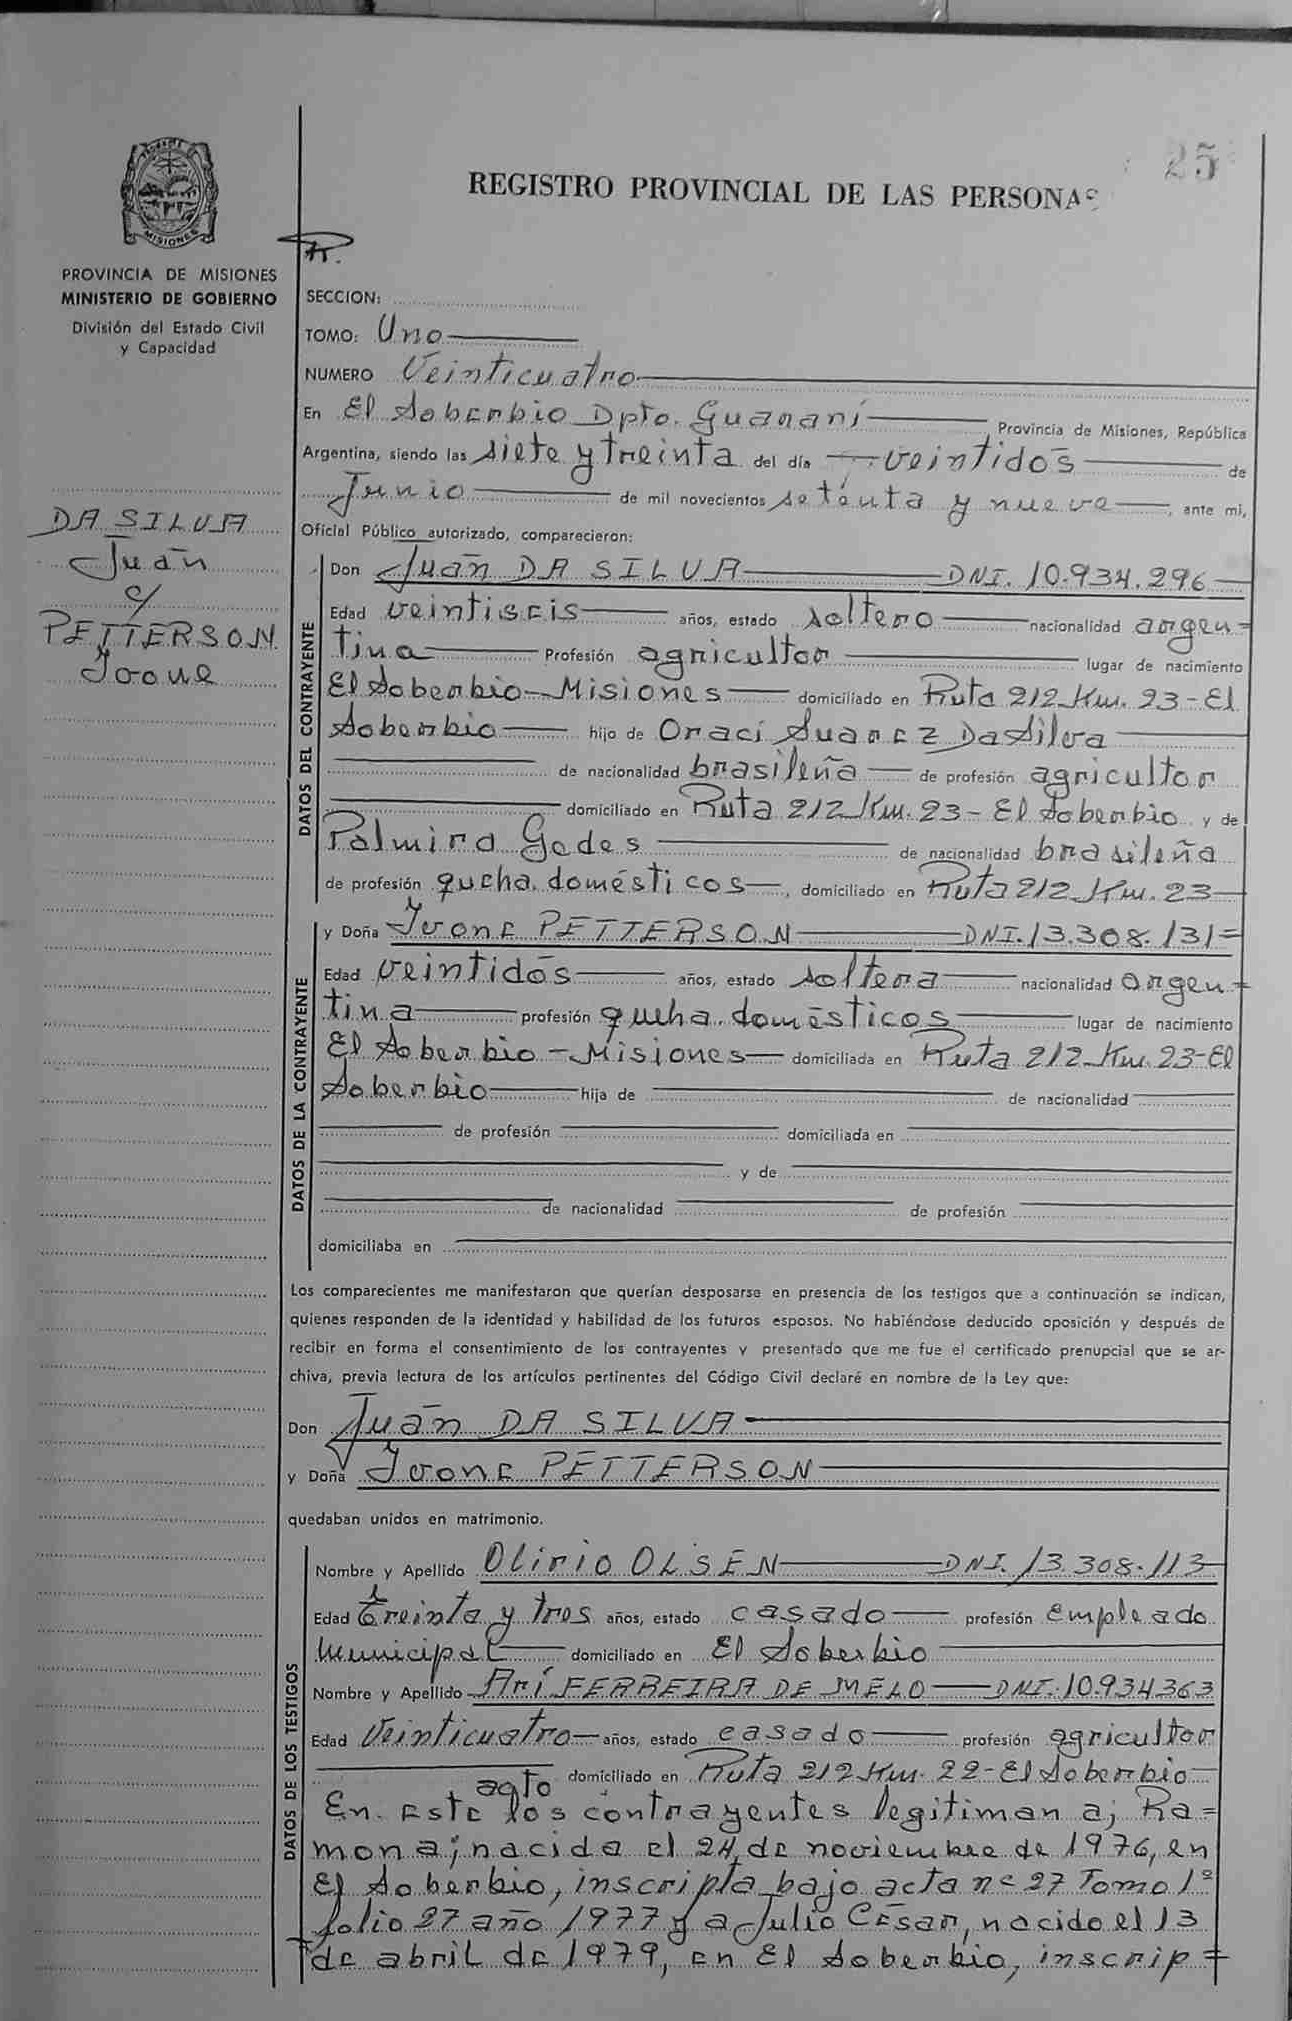 25
REGISTRO PROVINCIAL DE LAS PERSONAS
MISIONES
PROVINCIA DE MISIONES
MINISTERIO DE GOBIERNO
División del Estado Civil
y Capacidad
SECCION:
TOMO: Uno
NUMERO Veinticuatro
En El Soberbio Dpto. Guaraní Provincia de Misiones, República
Argentina, siendo las siete y treinta del día veintidós de
Junio de mil novecientos setenta y nueve, ante mi,
Oficial Público autorizado, comparecieron:
DA SILVA
Juan
c/
PETTERSON
Ivone
DATOS DEL CONTRAYENTE
Don Juan DA SILVA DNI. 10.934.296
Edad veintiseis años, estado soltero nacionalidad argen=
tina Profesión agricultor lugar de nacimiento
El Soberbio-Misiones domiciliado en Ruta 212 Km. 23-El
Soberbio hijo de Oraci Suarez Da Silva
de nacionalidad brasileña de profesión agricultor
domiciliado en Ruta 212 Km. 23- El Soberbio y de
Palmira Godes de nacionalidad brasileña
de profesión queha. domésticos, domiciliado en Ruta 212 Km. 23
DATOS DE LA CONTRAYENTE
y Doña Ivone PETTERSON DNI. 13.308.131=
Edad veintidós años, estado soltera nacionalidad argen=
tina profesión queha. domésticos lugar de nacimiento
El Soberbio-Misiones domiciliada en Ruta 212 Km. 23-El
Soberbio hija de de nacionalidad
de profesión domiciliada en
y de
de nacionalidad de profesión
domiciliaba en
Los comparecientes me manifestaron que querían desposarse en presencia de los testigos que a continuación se indican,
quienes responden de la identidad y habilidad de los futuros esposos. No habiéndose deducido oposición y después de
recibir en forma el consentimiento de los contrayentes y presentado que me fue el certificado prenupcial que se ar-
chiva, previa lectura de los artículos pertinentes del Código Civil declaré en nombre de la Ley que:
Don Juan DA SILVA
y Doña Ivone PETTERSON
quedaban unidos en matrimonio.
DATOS DE LOS TESTIGOS
Nombre y Apellido Olirio OLSEN DNI. 13.308.113
Edad treinta y tres años, estado casado profesión empleado
municipal domiciliado en El Soberbio
Nombre y Apellido Arí FERREIRA DE MELO DNI. 10.934363
Edad Veinticuatro años, estado casado profesión agricultor
domiciliado en Ruta 212 Km. 22-El Soberbio
acto
En este los contrayentes legitiman a; Ra=
mona; nacida el 24 de noviembre de 1976, en
El Soberbio, inscripta bajo acta nº 27 Tomo 1º
folio 27 año 1977 y a Julio César, nacido el 13
de abril de 1979, en El Soberbio, inscrip=